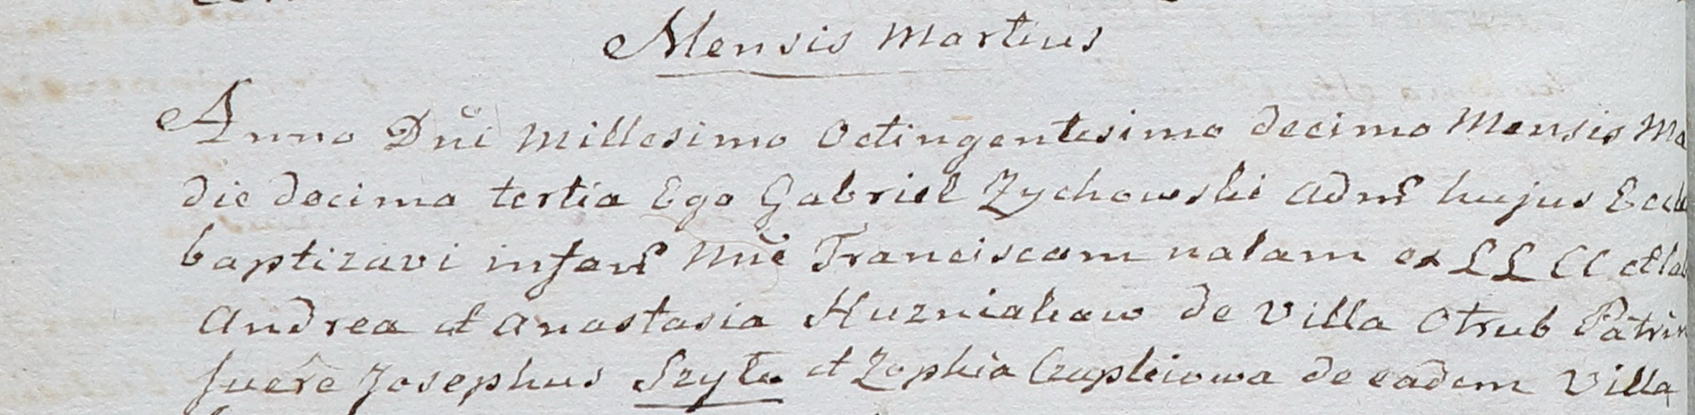 Mensis Martius
Anno Dñi Millesimo Octingentesimo decimo Mensis Ma
die decima tertia Ego Gabriel Zychowski Admr hujus Eccle
baptizavi infant Nñe Franciscam natam ex LL CC et lab
Andrea et Anastasia Kuzniakow de Villa Otrub Patrin
fuere Josephus Szyło et Zophia Czaplicowa de eadem Villa